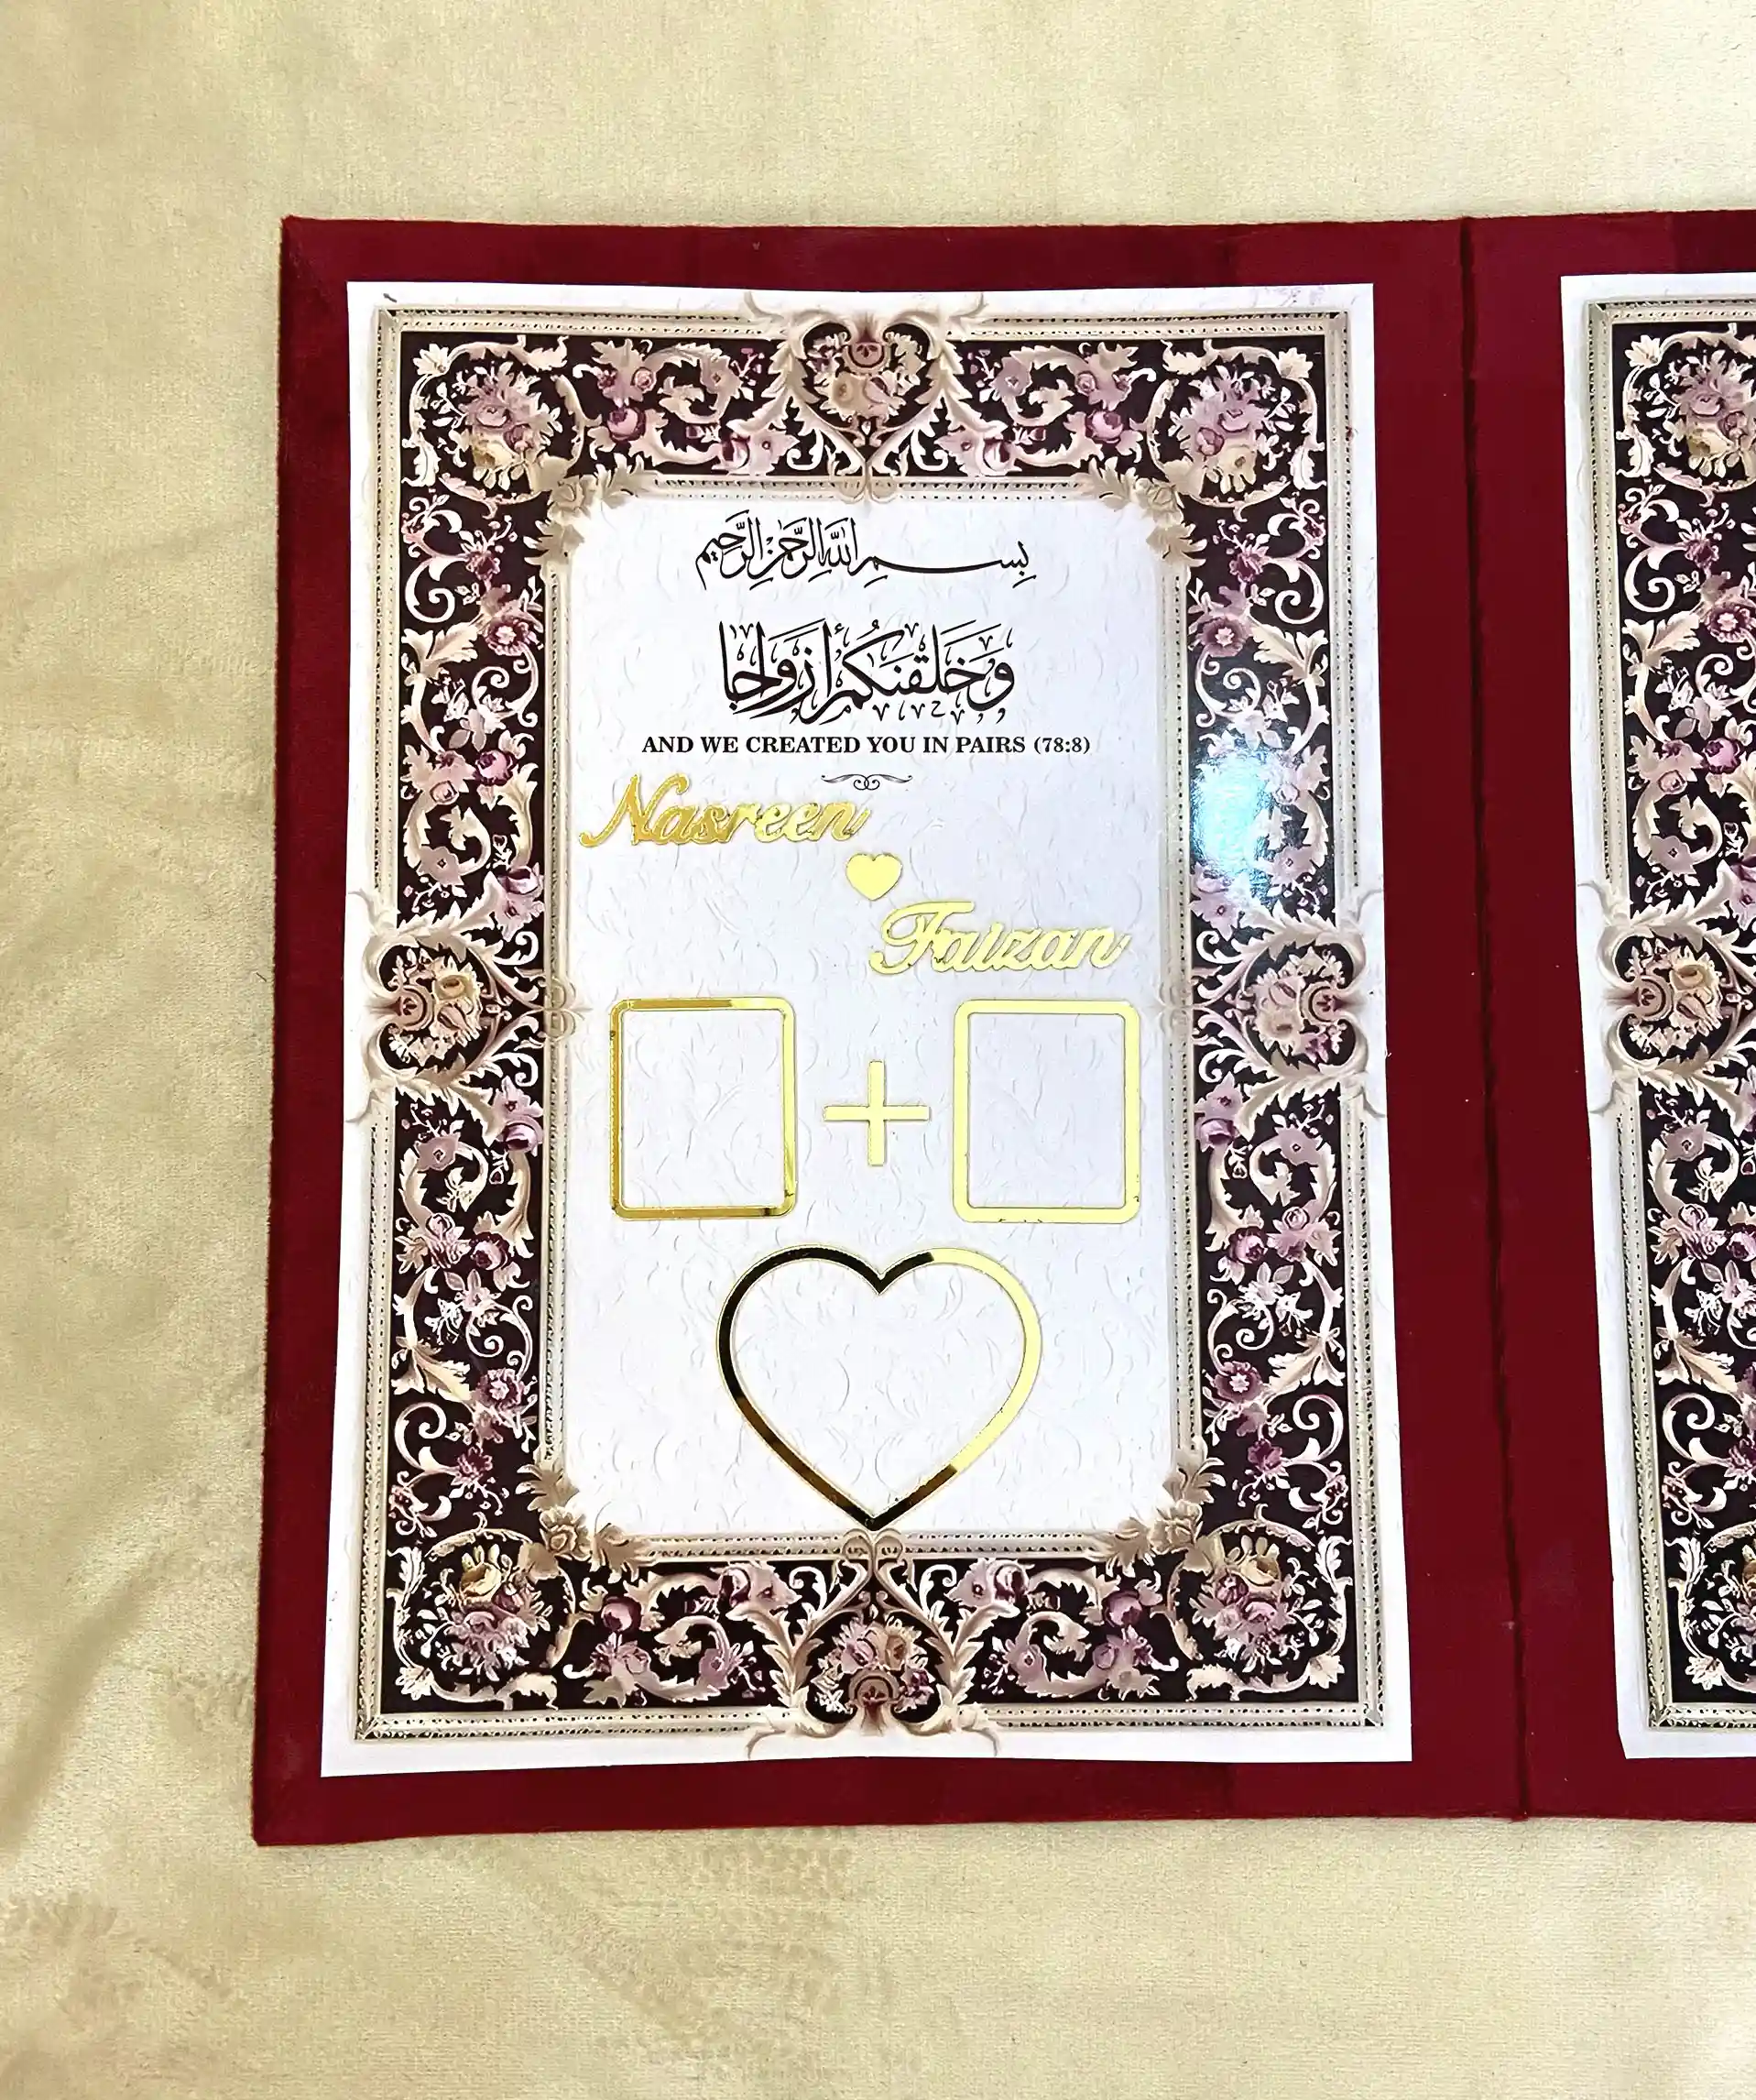 بِسْمِ اللَّهِ الرَّحْمَٰنِ الرَّحِيمِ
وَخَلَقْنَكُمْ أَزْوَاجًا
AND WE CREATED YOU IN PAIRS (78:8)
Nasreen
Faizan